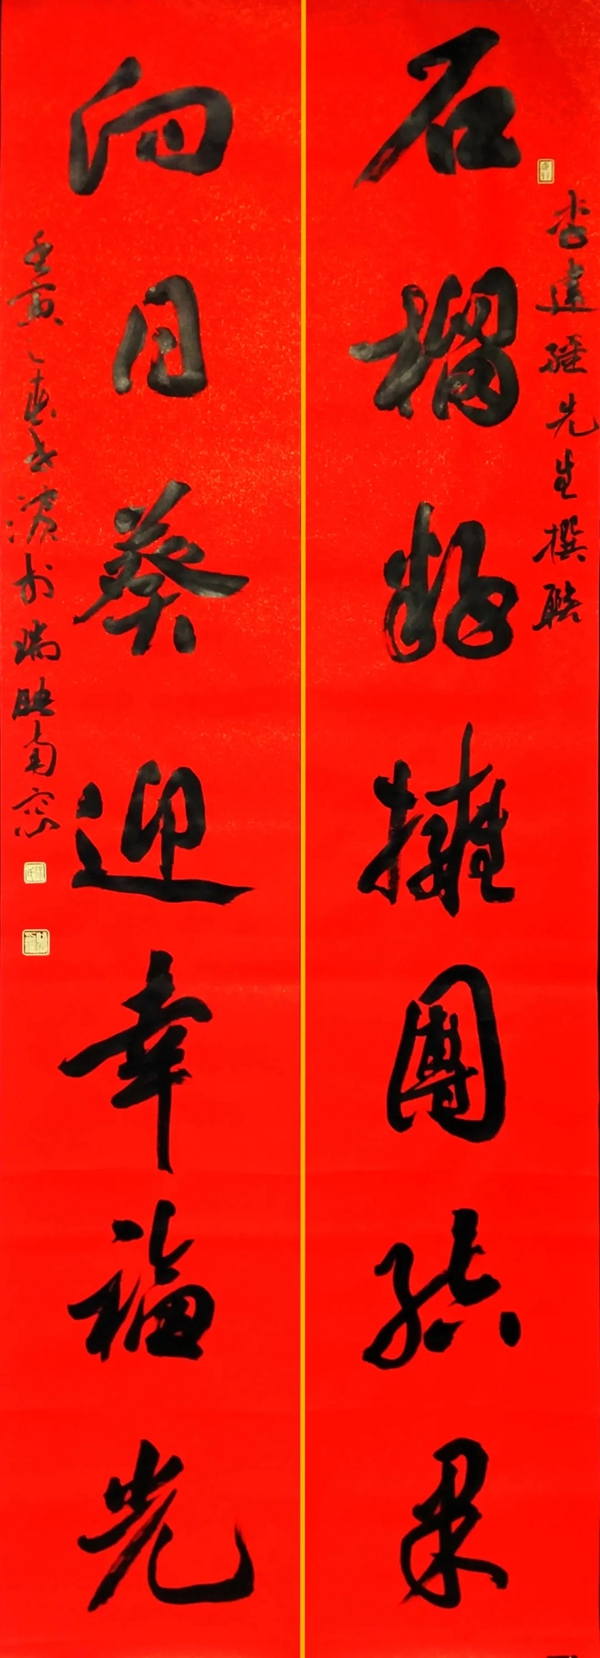 李先生撰聯
石榴籽擁團結果
向日葵迎幸福光
壬寅之春於瑞映南窗